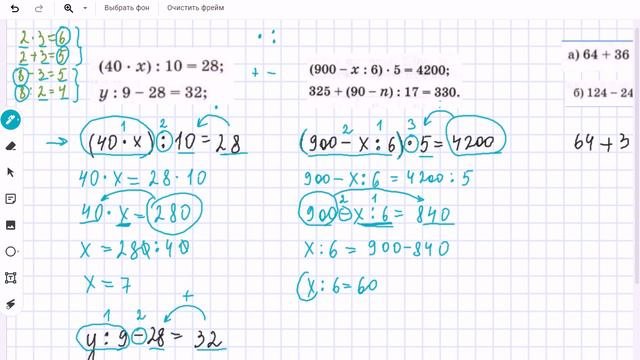 Выбрать фон Очистить фрейм
2 · 3 = 6
2 + 3 = 5
8 - 3 = 5
8 : 2 = 4
· :
+ -
(40 · x) : 10 = 28;
y : 9 – 28 = 32;
(900 – x : 6) · 5 = 4200;
325 + (90 – n) : 17 = 330.
а) 64 + 36
б) 124 – 24
1 2 ·
(40 · x) : 10 = 28
40 · x = 28 · 10
40 · x = 280
x = 280 : 40
x = 7
1 2 +
y : 9 - 28 = 32
2 1 3
(900 - x : 6) · 5 = 4200
900 - x : 6 = 4200 : 5
2 1
900 - x : 6 = 840
x : 6 = 900 - 840
x : 6 = 60
64 + 3